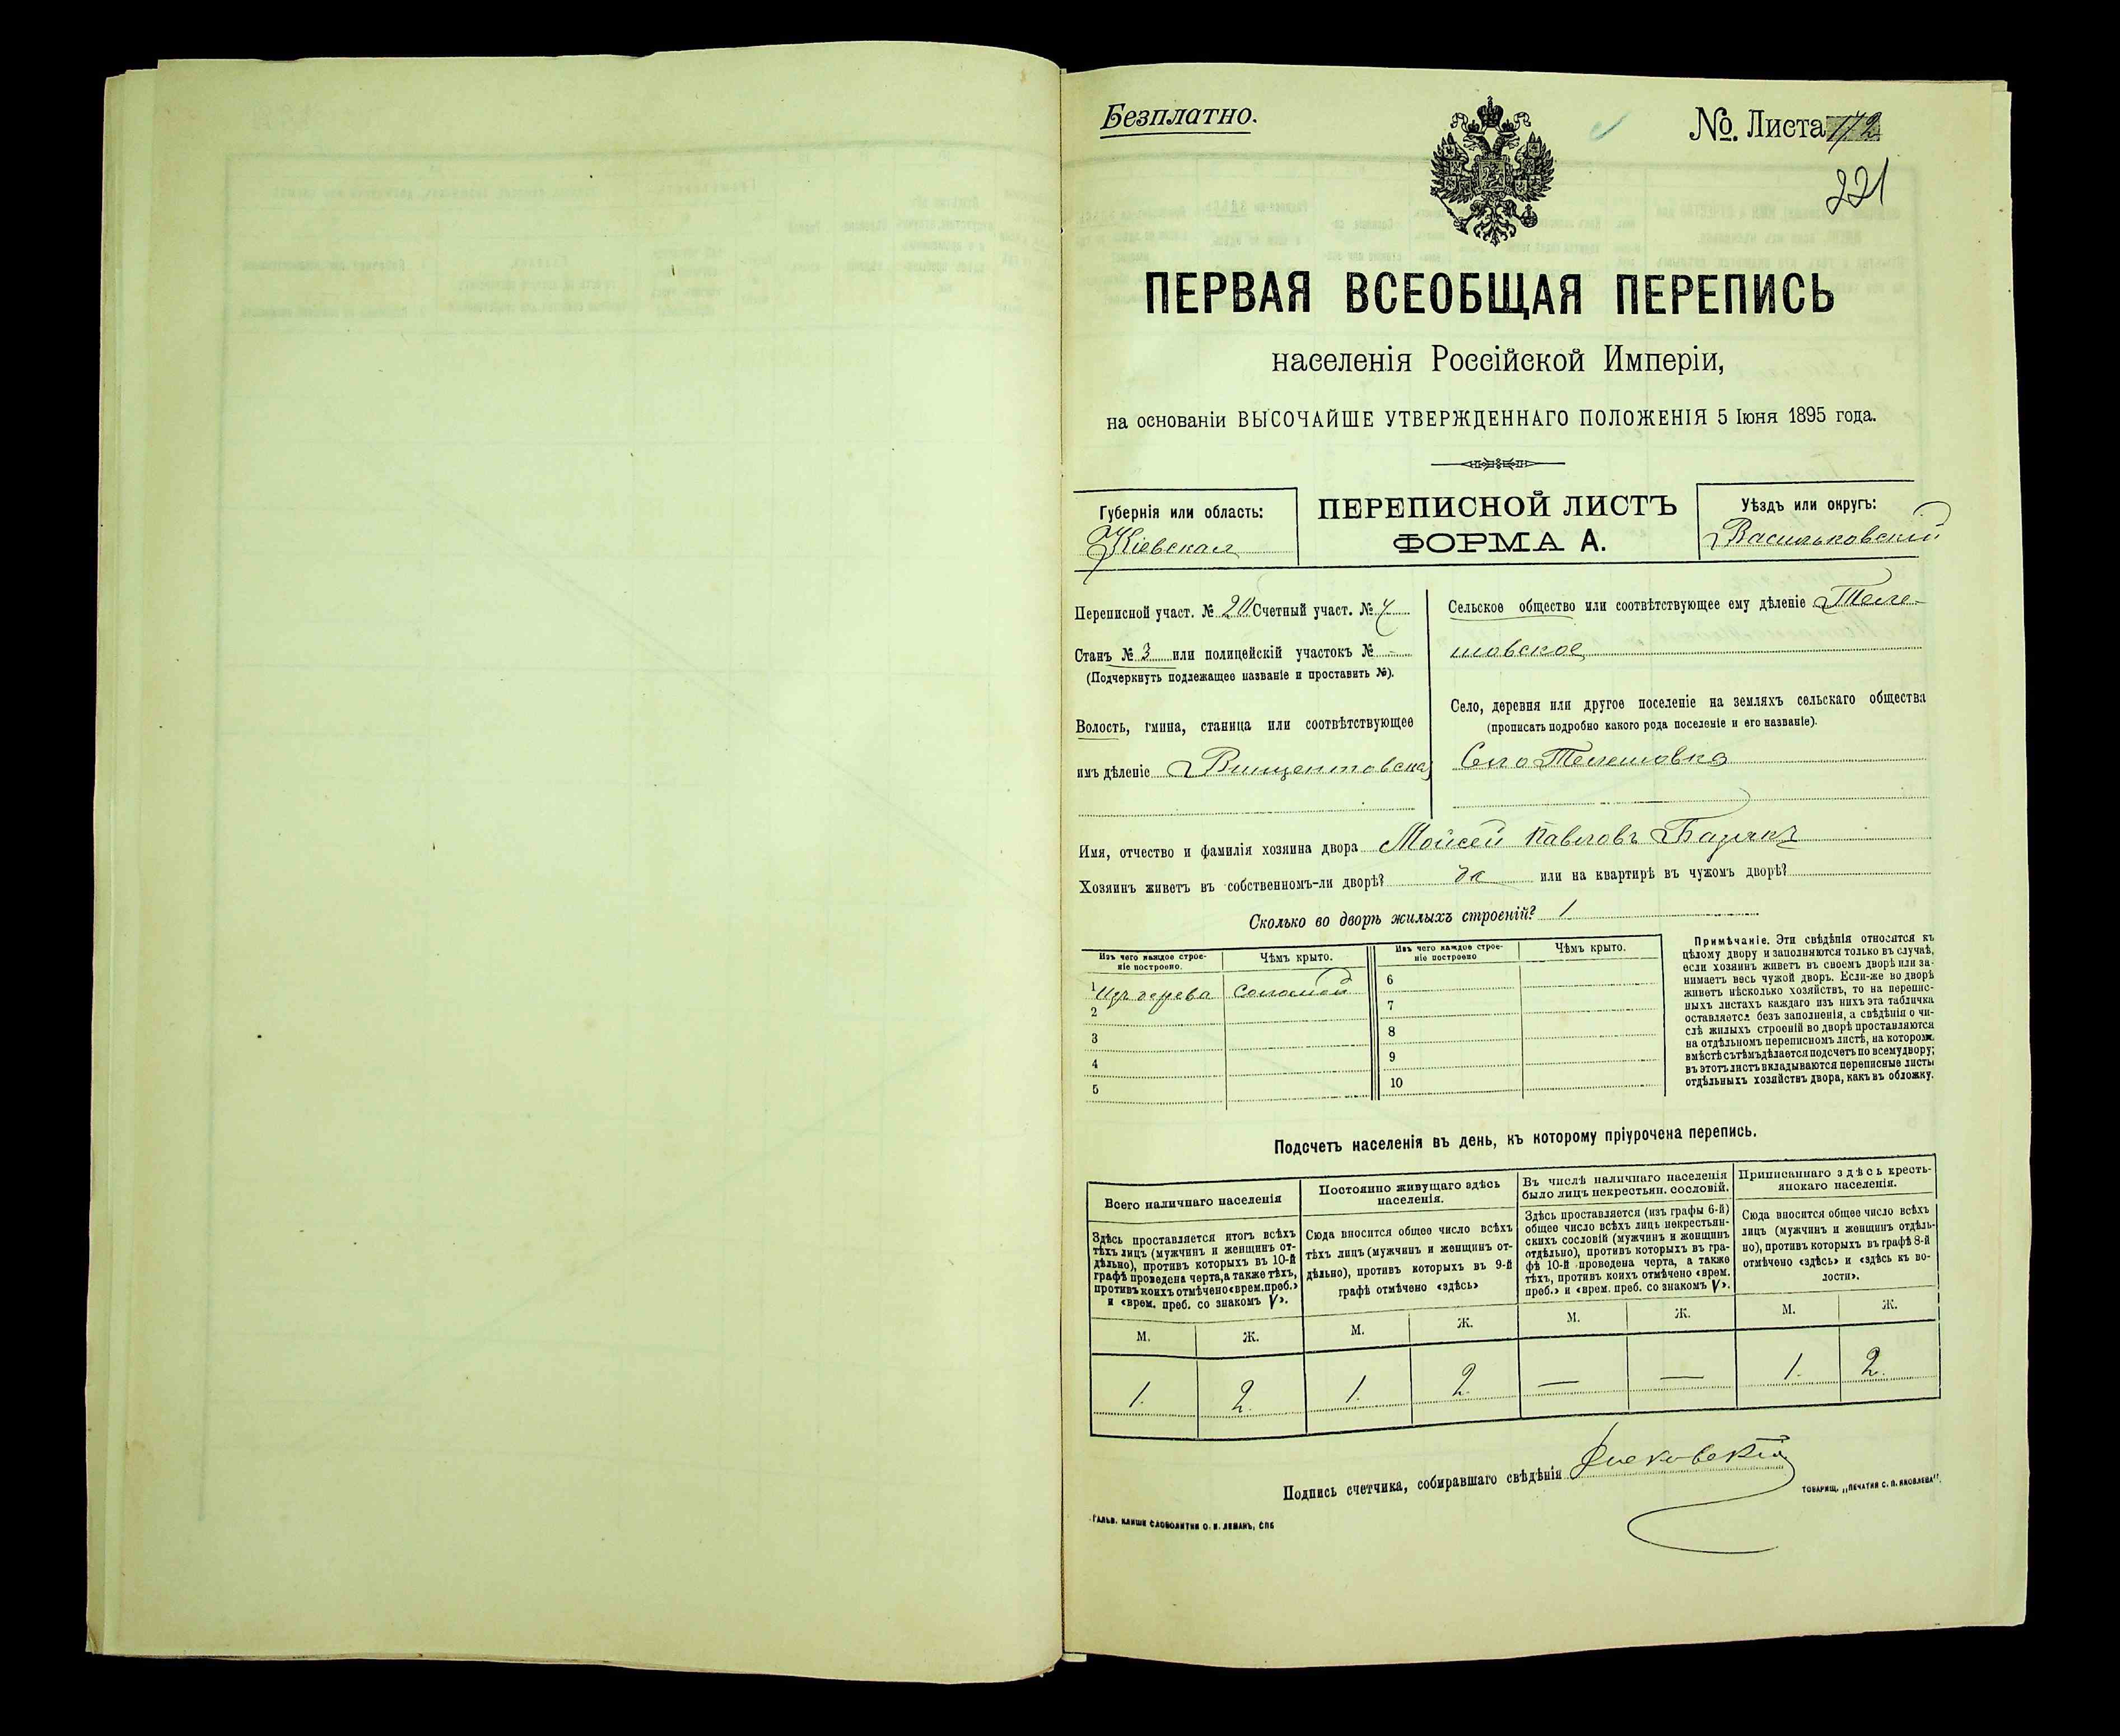 Безплатно.
№. Листа 172
221
ПЕРВАЯ ВСЕОБЩАЯ ПЕРЕПИСЬ
населенія Россійской Имперіи,
на основаніи ВЫСОЧАЙШЕ УТВЕРЖДЕННАГО ПОЛОЖЕНІЯ 5 Іюня 1895 года.
Губернія или область:
Кіевская
ПЕРЕПИСНОЙ ЛИСТЪ
ФОРМА А.
Уѣздъ или округъ:
Васильковскій
Переписной участ. № 20 Счетный участ. № 4
Станъ № 3 или полицейскій участокъ № -
(Подчеркнуть подлежащее названіе и проставить №).
Волость, гмина, станица или соотвѣтствующее
имъ дѣленіе Винцентовская
Сельское общество или соотвѣтствующее ему дѣленіе Теле-
шовское
Село, деревня или другое поселеніе на земляхъ сельскаго общества
(прописать подробно какого рода поселеніе и его названіе).
Село Телешовка
Имя, отчество и фамилія хозяина двора Мойсей Павловъ
Хозяинъ живетъ въ собственномъ-ли дворѣ? да или на квартирѣ въ чужомъ дворѣ?
Сколько во дворѣ жилыхъ строеній? 1
Изъ чего каждое строе-
ніе построено.
Чѣмъ крыто.
Изъ чего каждое строе-
ніе построено
Чѣмъ крыто.
1 Изъ дерева соломой
2
3
4
5
6
7
8
9
10
Примѣчаніе. Эти свѣдѣнія относятся къ
цѣлому двору и заполняются только въ случаѣ,
если хозяинъ живетъ въ своемъ дворѣ или за-
нимаетъ весь чужой дворъ. Если-же во дворѣ
живетъ нѣсколько хозяйствъ, то на перепис-
ныхъ листахъ каждаго изъ нихъ эта табличка
оставляется безъ заполненія, а свѣдѣнія о чи-
слѣ жилыхъ строеній во дворѣ проставляются
на отдѣльномъ переписномъ листѣ, на которомъ
вмѣстѣ съ тѣмъ дѣлается подсчетъ по всему двору;
въ этотъ листъ вкладываются переписные листы
отдѣльныхъ хозяйствъ двора, какъ въ обложку.
Подсчетъ населенія въ день, къ которому пріурочена перепись.
Всего наличнаго населенія
Здѣсь проставляется итогъ всѣхъ
тѣхъ лицъ (мужчинъ и женщинъ от-
дѣльно), противъ которыхъ въ 10-й
графѣ проведена черта, а также тѣхъ,
противъ коихъ отмѣчено «врем. преб.»
и «врем. преб. со знакомъ V».
Постоянно живущаго здѣсь
населенія.
Сюда вносится общее число всѣхъ
тѣхъ лицъ (мужчинъ и женщинъ от-
дѣльно), противъ которыхъ въ 9-й
графѣ отмѣчено «здѣсь»
Въ числѣ наличнаго населенія
было лицъ некрестьян. сословій.
Здѣсь проставляется (изъ графы 6-й)
общее число всѣхъ лицъ некрестьян-
скихъ сословій (мужчинъ и женщинъ
отдѣльно), противъ которыхъ въ гра-
фѣ 10-й проведена черта, а также
тѣхъ, противъ коихъ отмѣчено «врем.
преб.» и «врем. преб. со знакомъ V».
Приписаннаго здѣсь кресть-
янскаго населенія.
Сюда вносится общее число всѣхъ
лицъ (мужчинъ и женщинъ отдѣль-
но), противъ которыхъ въ графѣ 8-й
отмѣчено «здѣсь» и «здѣсь къ во-
лости».
М. Ж. М. Ж. М. Ж. М. Ж.
1. 2. 1. 2. — — 1. 2.
Подпись счетчика, собиравшаго свѣдѣнія
ГАЛЬВ. КЛИШЕ СЛОВОЛИТНИ О. И. ЛЕМАНЪ, СПБ
ТОВАРИЩ. „ПЕЧАТНЯ С. П. ЯКОВЛЕВА".